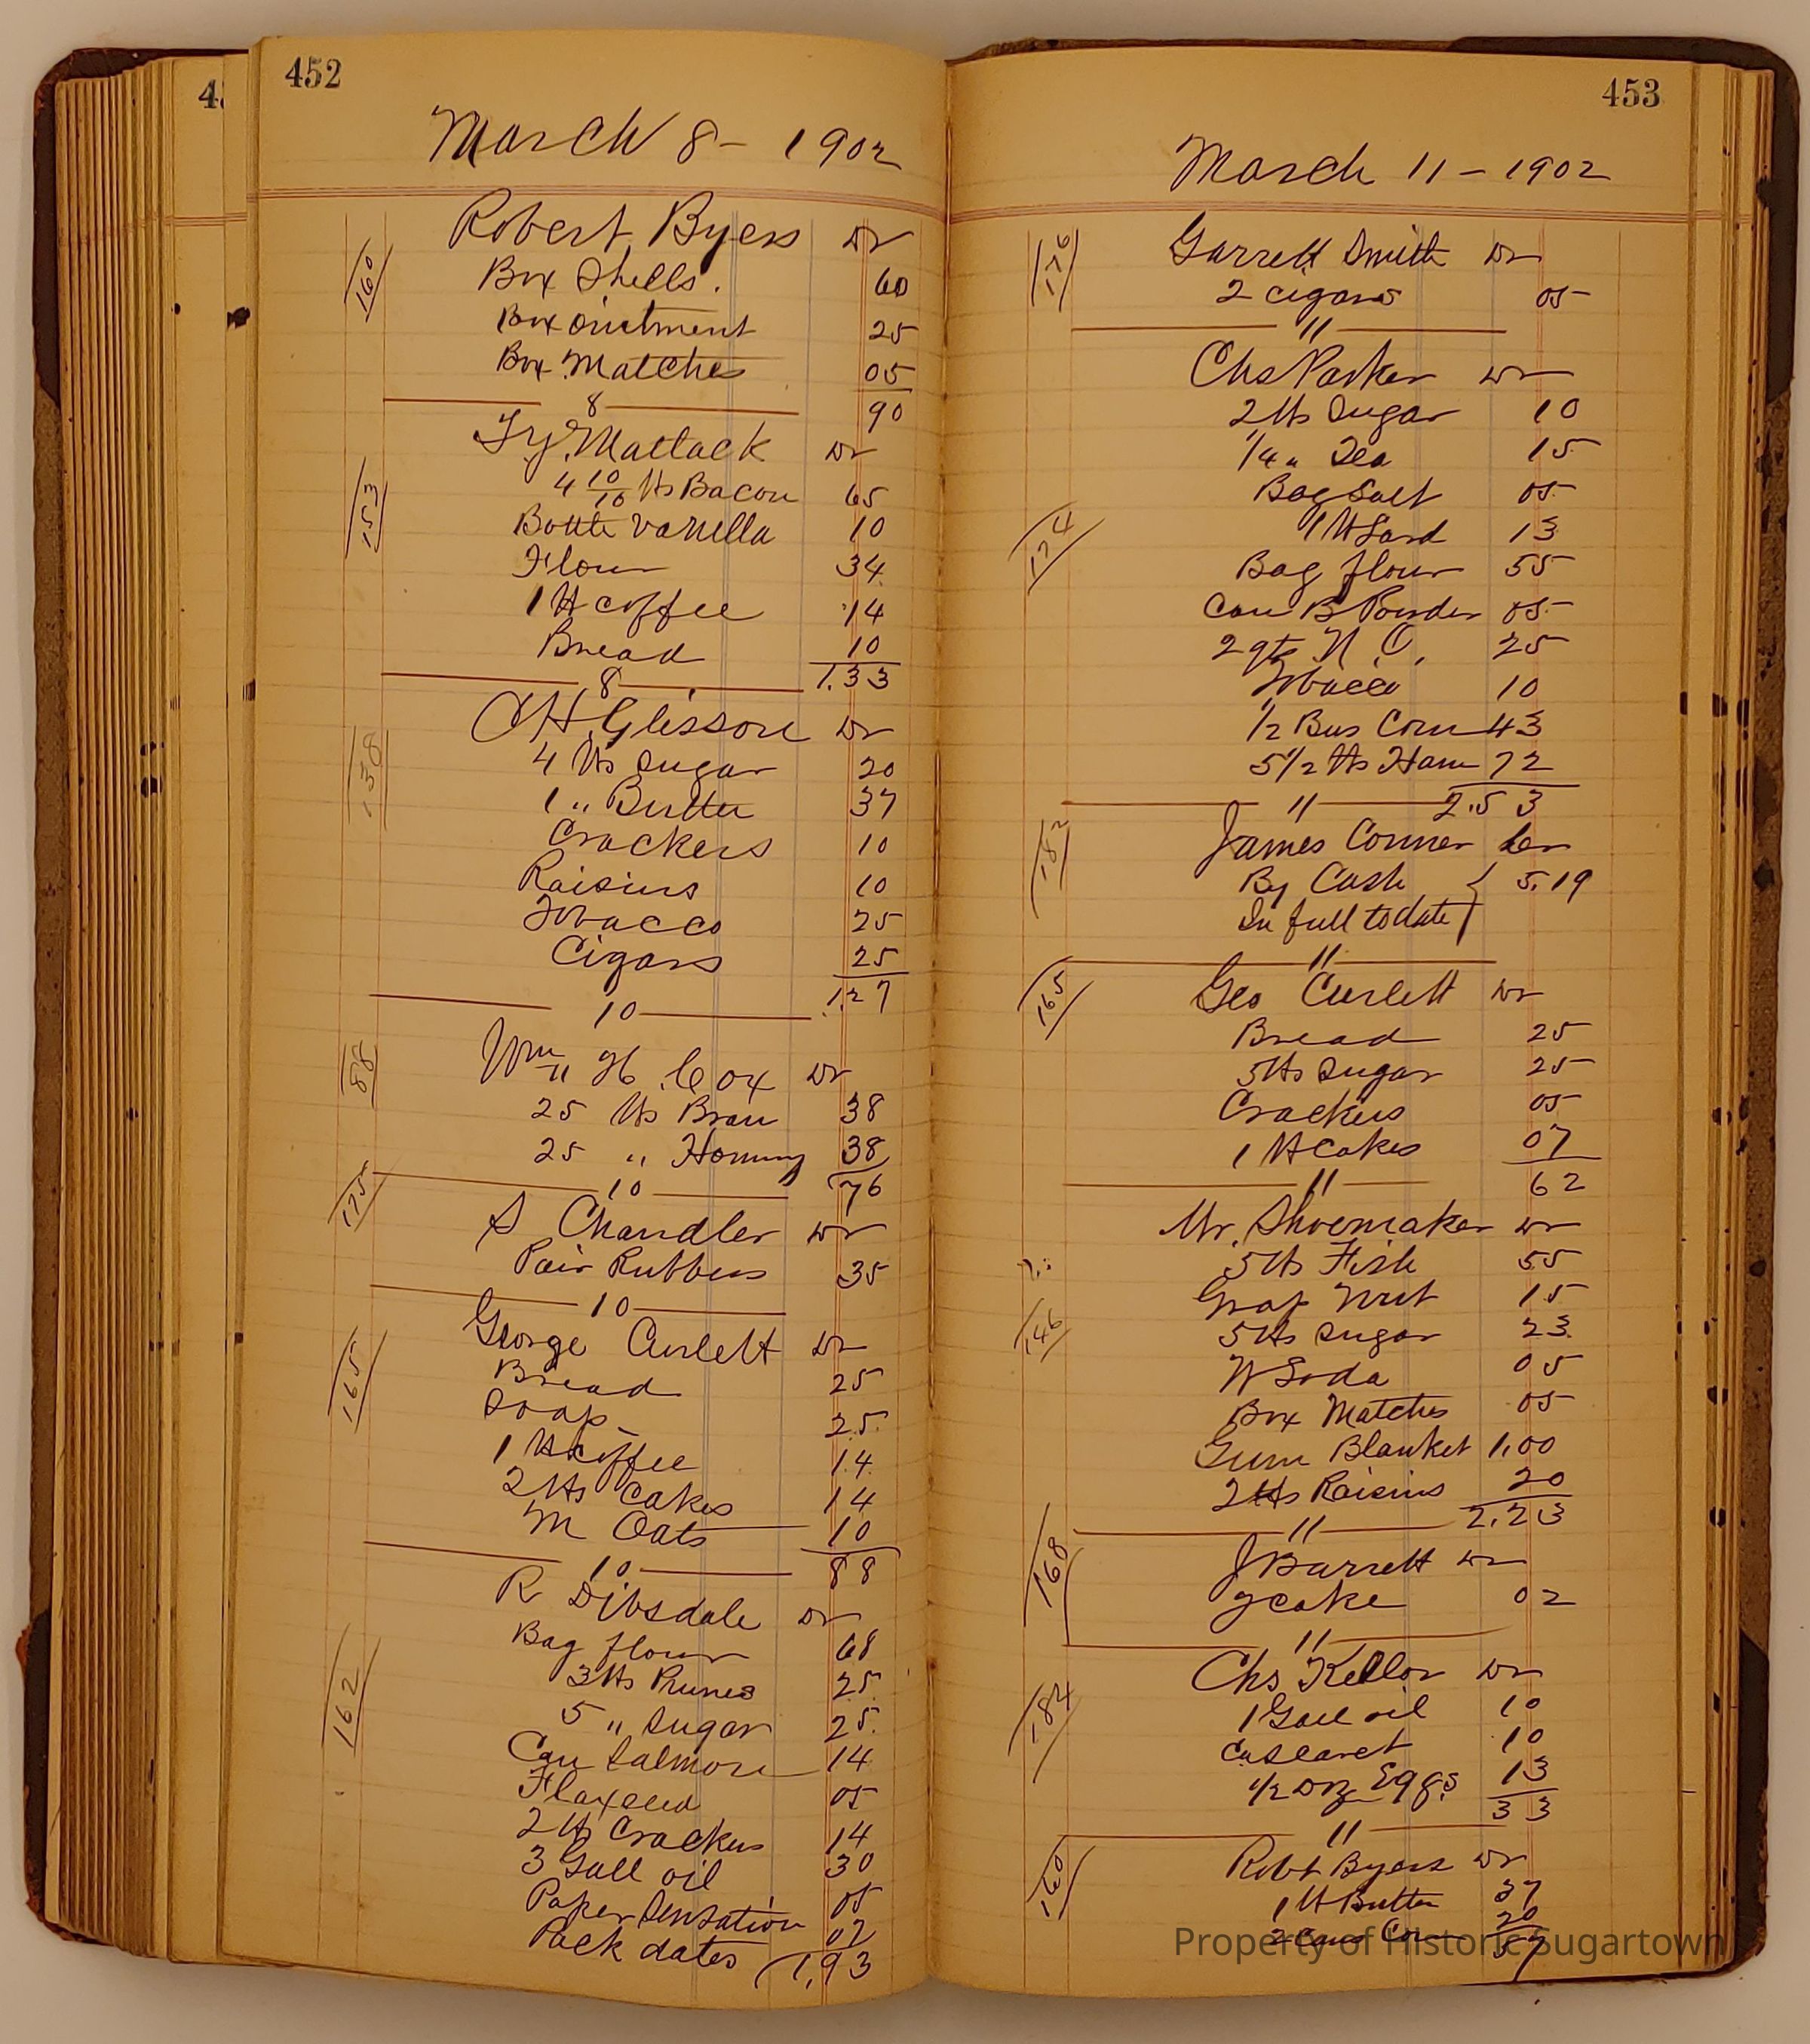 452
March 8 - 1902
160
Robert Byers Dr
Box Shells. 60
Box Ointment 25
Box Matches 05
8 90
Mattack Dr
153
4 10/16 lbs Bacon 65
Bottle Vanilla 10
Flour 34
1 lb coffee 14
Bread 10
8 1.33
138
Glisson Dr
4 lbs Sugar 20
1 " Butter 37
Crackers 10
Raisins 10
Tobacco 25
Cigars 25
10 1.27
88
Wm H. Cox Dr
25 lbs Bran 38
25 " Hominy 38
10 76
175
S Chandler Dr
Pair Rubbers 35
10
165
George Curlett Dr
Bread 25
Soap 25
1 lb coffee 14
2 lbs Cakes 14
M Oats 10
10 88
162
R Dibsdale Dr
Bag flour 68
3 lbs Prunes 25
5 " Sugar 25
Can Salmon 14
Flaxseed 05
2 lb Crackers 14
3 Gall oil 30
Paper Sensation 05
Pack dates 07
1.93
453
March 11 - 1902
176
Garrett Smith Dr
2 cigars 05
11
174
Chs Parker Dr
2 lbs Sugar 10
1/4 " Tea 15
Bag Salt 05
1 lb Lard 13
Bag flour 55
Can B Powder 05
2 qts N. O. 25
Tobacco 10
1/2 Bus Corn 43
5 1/2 lbs Ham 72
11 2.53
182
James Conner Cr
By Cash 5.19
In full to date
11
165
Geo Curlett Dr
Bread 25
5 lbs Sugar 25
Crackers 05
1 lb Cakes 07
11 62
146
Mr. Shoemaker Dr
5 lbs Fish 55
Grap Nut 15
5 lbs Sugar 23
W Soda 05
Box Matches 05
Gum Blanket 1.00
2 lbs Raisins 20
11 2.23
168
J Barrett Dr
Y cake 02
11
184
Chs Kellor Dr
1 Gall oil 10
Cascaret 10
1/2 Doz Eggs 13
33
11
160
Robt Byers Dr
1 lb Butter 37
2 Cans Corn 20
57
Property of Historic Sugartown